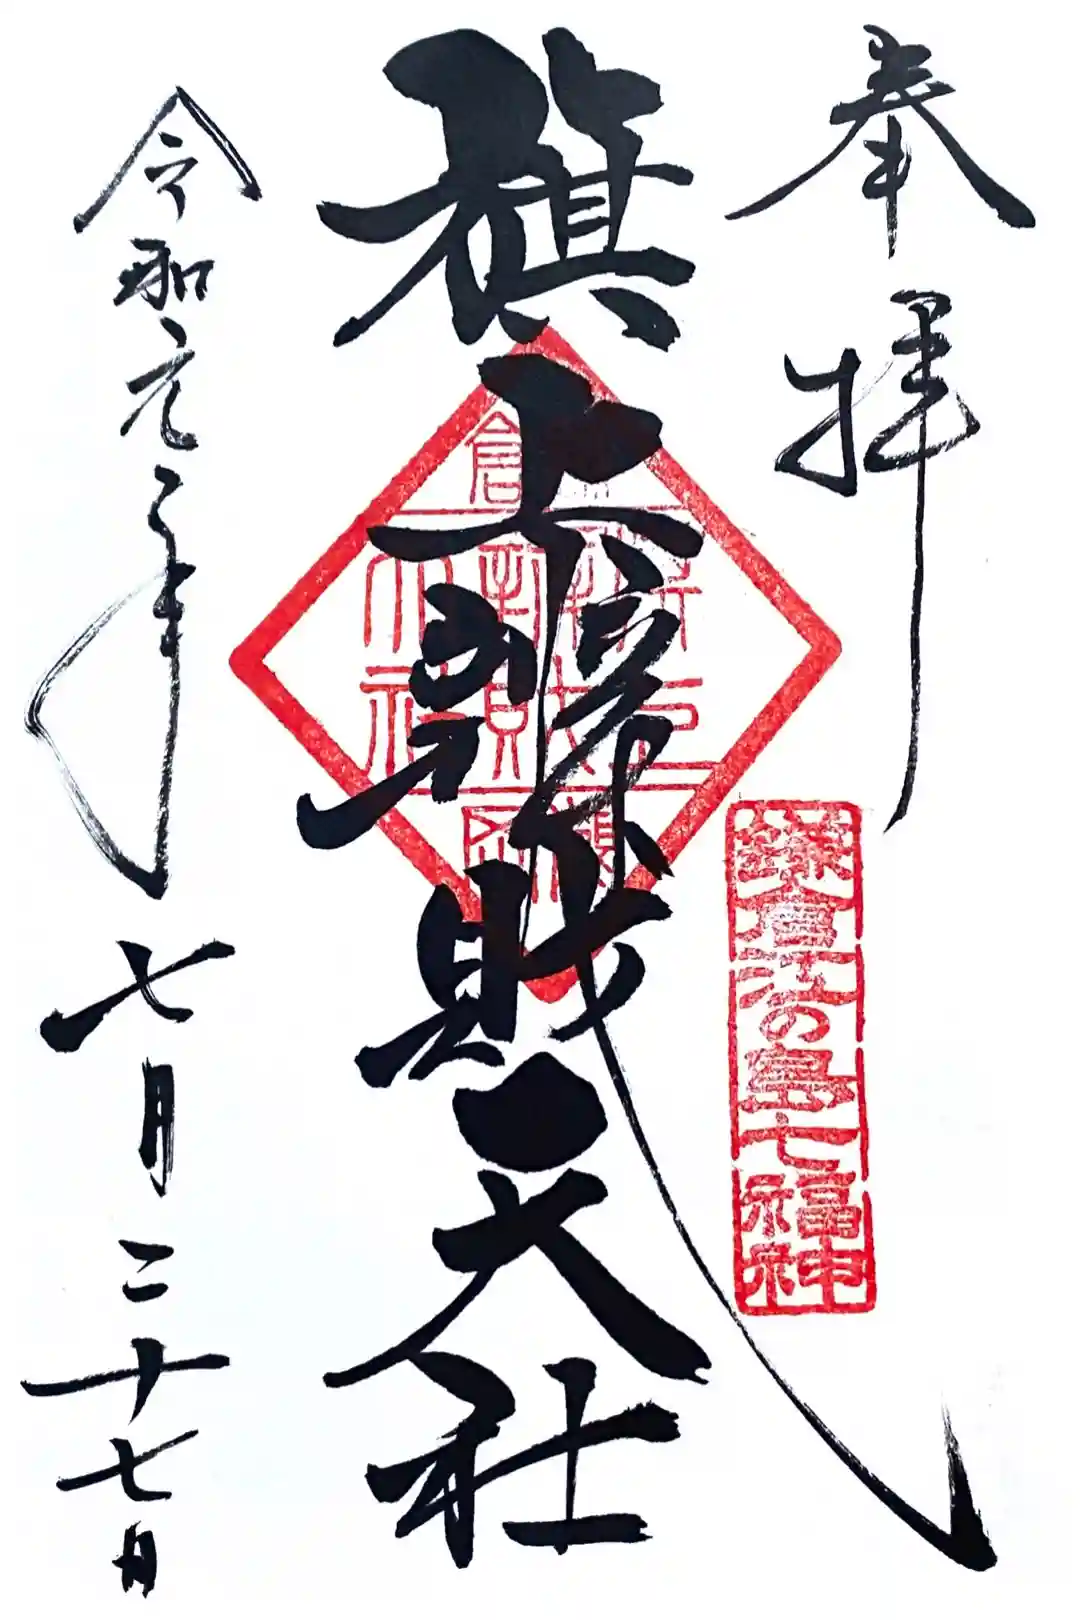 奉拝
鎌倉江の島七福神
旗上辨財天社
令和元年七月二十七日